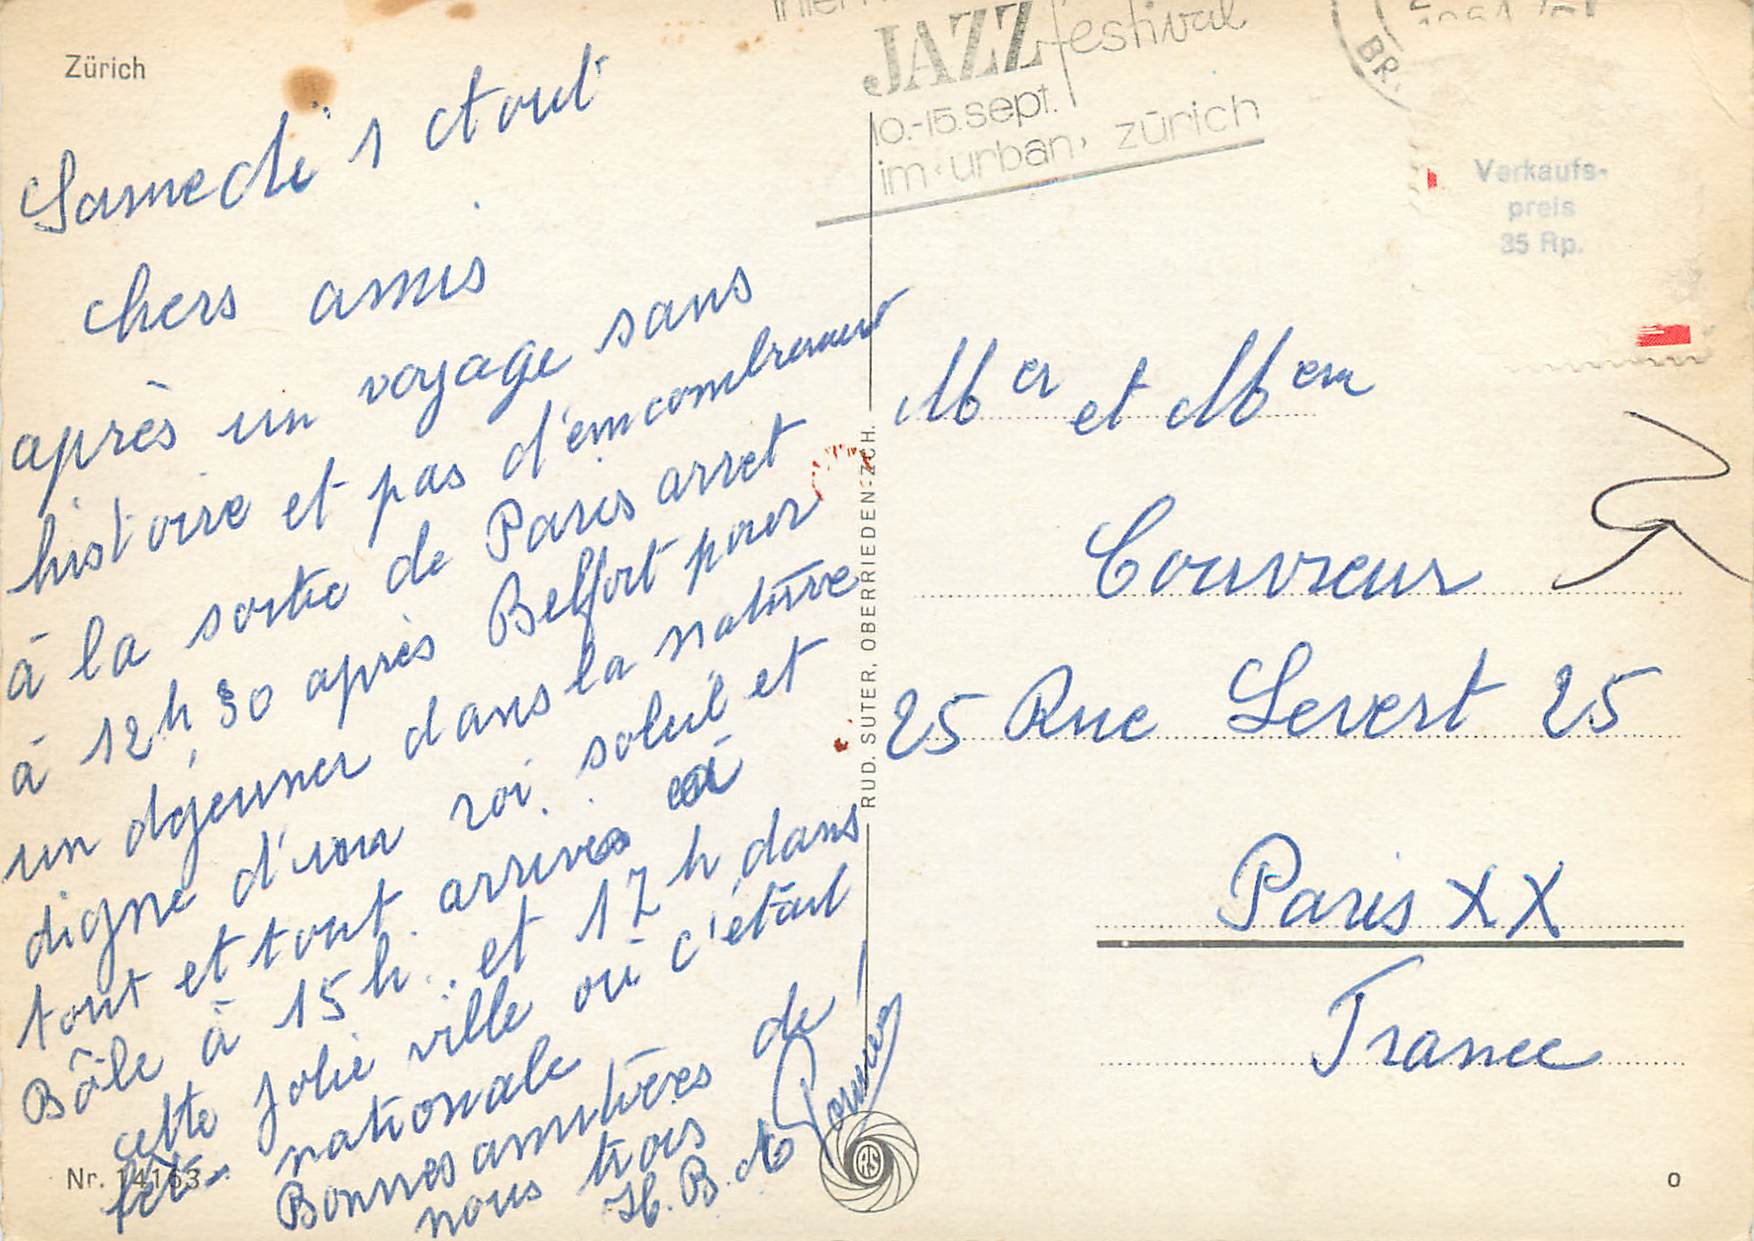 Zürich
JAZZ festival
10.-15.sept.
im ‹urban› zürich
BR.
Verkaufs-
preis
35 Rp.
Samedi 1 Aout
chers amis
après un voyage sans
histoire et pas d'emcombremeur
à la sortie de Paris arret
à 12h,30 après Belfort pour
un déjeuner dans la nature
digne d'un roi. soleil et
tout et tout arrivés à
Bôle à 15h.. et 17h dans
cette jolie ville où c'était
fête nationale
Bonnes amitières de
nous trois
H. B. M
Mer et Mem
Couvreur
25 Rue Levert 25
Paris XX
France
RUD. SUTER, OBERRIEDEN-ZCH.
Nr. 14163
RS
o